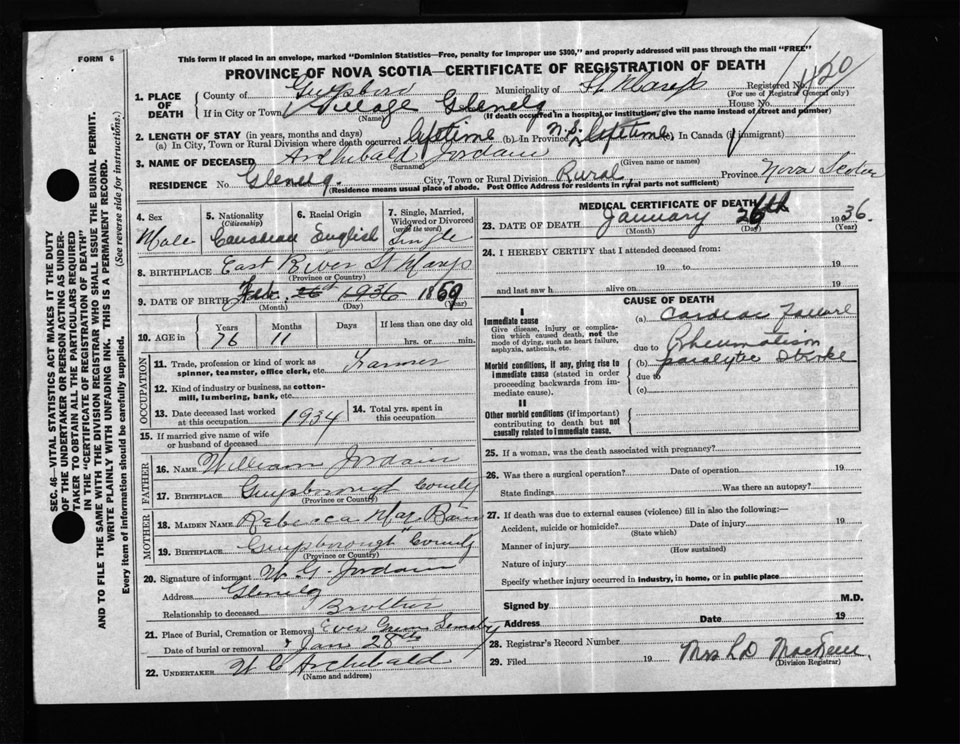 FORM 6
This form if placed in an envelope, marked "Dominion Statistics—Free, penalty for improper use $300," and properly addressed will pass through the mail "FREE"
PROVINCE OF NOVA SCOTIA—CERTIFICATE OF REGISTRATION OF DEATH
1. PLACE OF DEATH County of Municipality of St Marys Registered No. 1120 (For use of Registrar General only)
If in City or Town Village Glenelg House No.
(Name) (If death occurred in a hospital or institution, give the name instead of street and number)
2. LENGTH OF STAY (in years, months and days)
(a) In City, Town or Rural Division where death occurred lifetime (b) In Province N.S. lifetime (c) In Canada (if immigrant)
3. NAME OF DECEASED Archibald Jordain
(Surname) (Given name or names)
RESIDENCE No. Glenelg. City, Town or Rural Division Rural Province Nova Scotia
(Residence means usual place of abode. Post Office Address for residents in rural parts not sufficient)
4. Sex Male
5. Nationality (Citizenship) Canadian
6. Racial Origin English
7. Single, Married, Widowed or Divorced (write the word) Single
8. BIRTHPLACE East River St Marys
(Province or Country)
9. DATE OF BIRTH Feb. 26th 1936 1859
(Month) (Day) (Year)
10. AGE in Years 76 Months 11 Days If less than one day old hrs. or min.
OCCUPATION
11. Trade, profession or kind of work as spinner, teamster, office clerk, etc. Farmer
12. Kind of industry or business, as cotton-mill, lumbering, bank, etc.
13. Date deceased last worked at this occupation 1934
14. Total yrs. spent in this occupation
15. If married give name of wife or husband of deceased
FATHER
16. NAME William Jordain
17. BIRTHPLACE Guysborough County
(Province or Country)
MOTHER
18. MAIDEN NAME Rebecca
19. BIRTHPLACE Guysborough County
(Province or Country)
20. Signature of informant W. G. Jordain
Address Glenelg
Relationship to deceased Brother
21. Place of Burial, Cremation or Removal Ever Green
Date of burial or removal Jan 28th
22. UNDERTAKER W C Archibald
(Name and address)
MEDICAL CERTIFICATE OF DEATH
23. DATE OF DEATH January 26th 1936.
(Month) (Day) (Year)
24. I HEREBY CERTIFY that I attended deceased from:
19 to 19
and last saw h alive on 19
CAUSE OF DEATH
I
Immediate cause (a) Cardiac Failure
Give disease, injury or complication which caused death, not the mode of dying, such as heart failure, asphyxia, asthenia, etc.
due to Rheumatism
Morbid conditions, if any, giving rise to immediate cause (stated in order proceeding backwards from immediate cause).
(b) paralytic Stroke
due to
(c)
II
Other morbid conditions (if important) contributing to death but not causally related to immediate cause.
25. If a woman, was the death associated with pregnancy?
26. Was there a surgical operation? Date of operation 19
State findings Was there an autopsy?
27. If death was due to external causes (violence) fill in also the following:—
Accident, suicide or homicide? Date of injury 19
(State which)
Manner of injury
(How sustained)
Nature of injury
Specify whether injury occurred in industry, in home, or in public place
Signed by M.D.
Address Date 19
28. Registrar's Record Number
29. Filed 19 Mrs L D
(Division Registrar)
SEC. 46—VITAL STATISTICS ACT MAKES IT THE DUTY
OF THE UNDERTAKER OR PERSON ACTING AS UNDER-
TAKER TO OBTAIN ALL THE PARTICULARS REQUIRED
IN THE "CERTIFICATE OF REGISTRATION OF DEATH"
AND TO FILE THE SAME WITH THE DIVISION REGISTRAR WHO SHALL ISSUE THE BURIAL PERMIT.
WRITE PLAINLY WITH UNFADING INK. THIS IS A PERMANENT RECORD.
Every item of information should be carefully supplied. (See reverse side for instructions.)